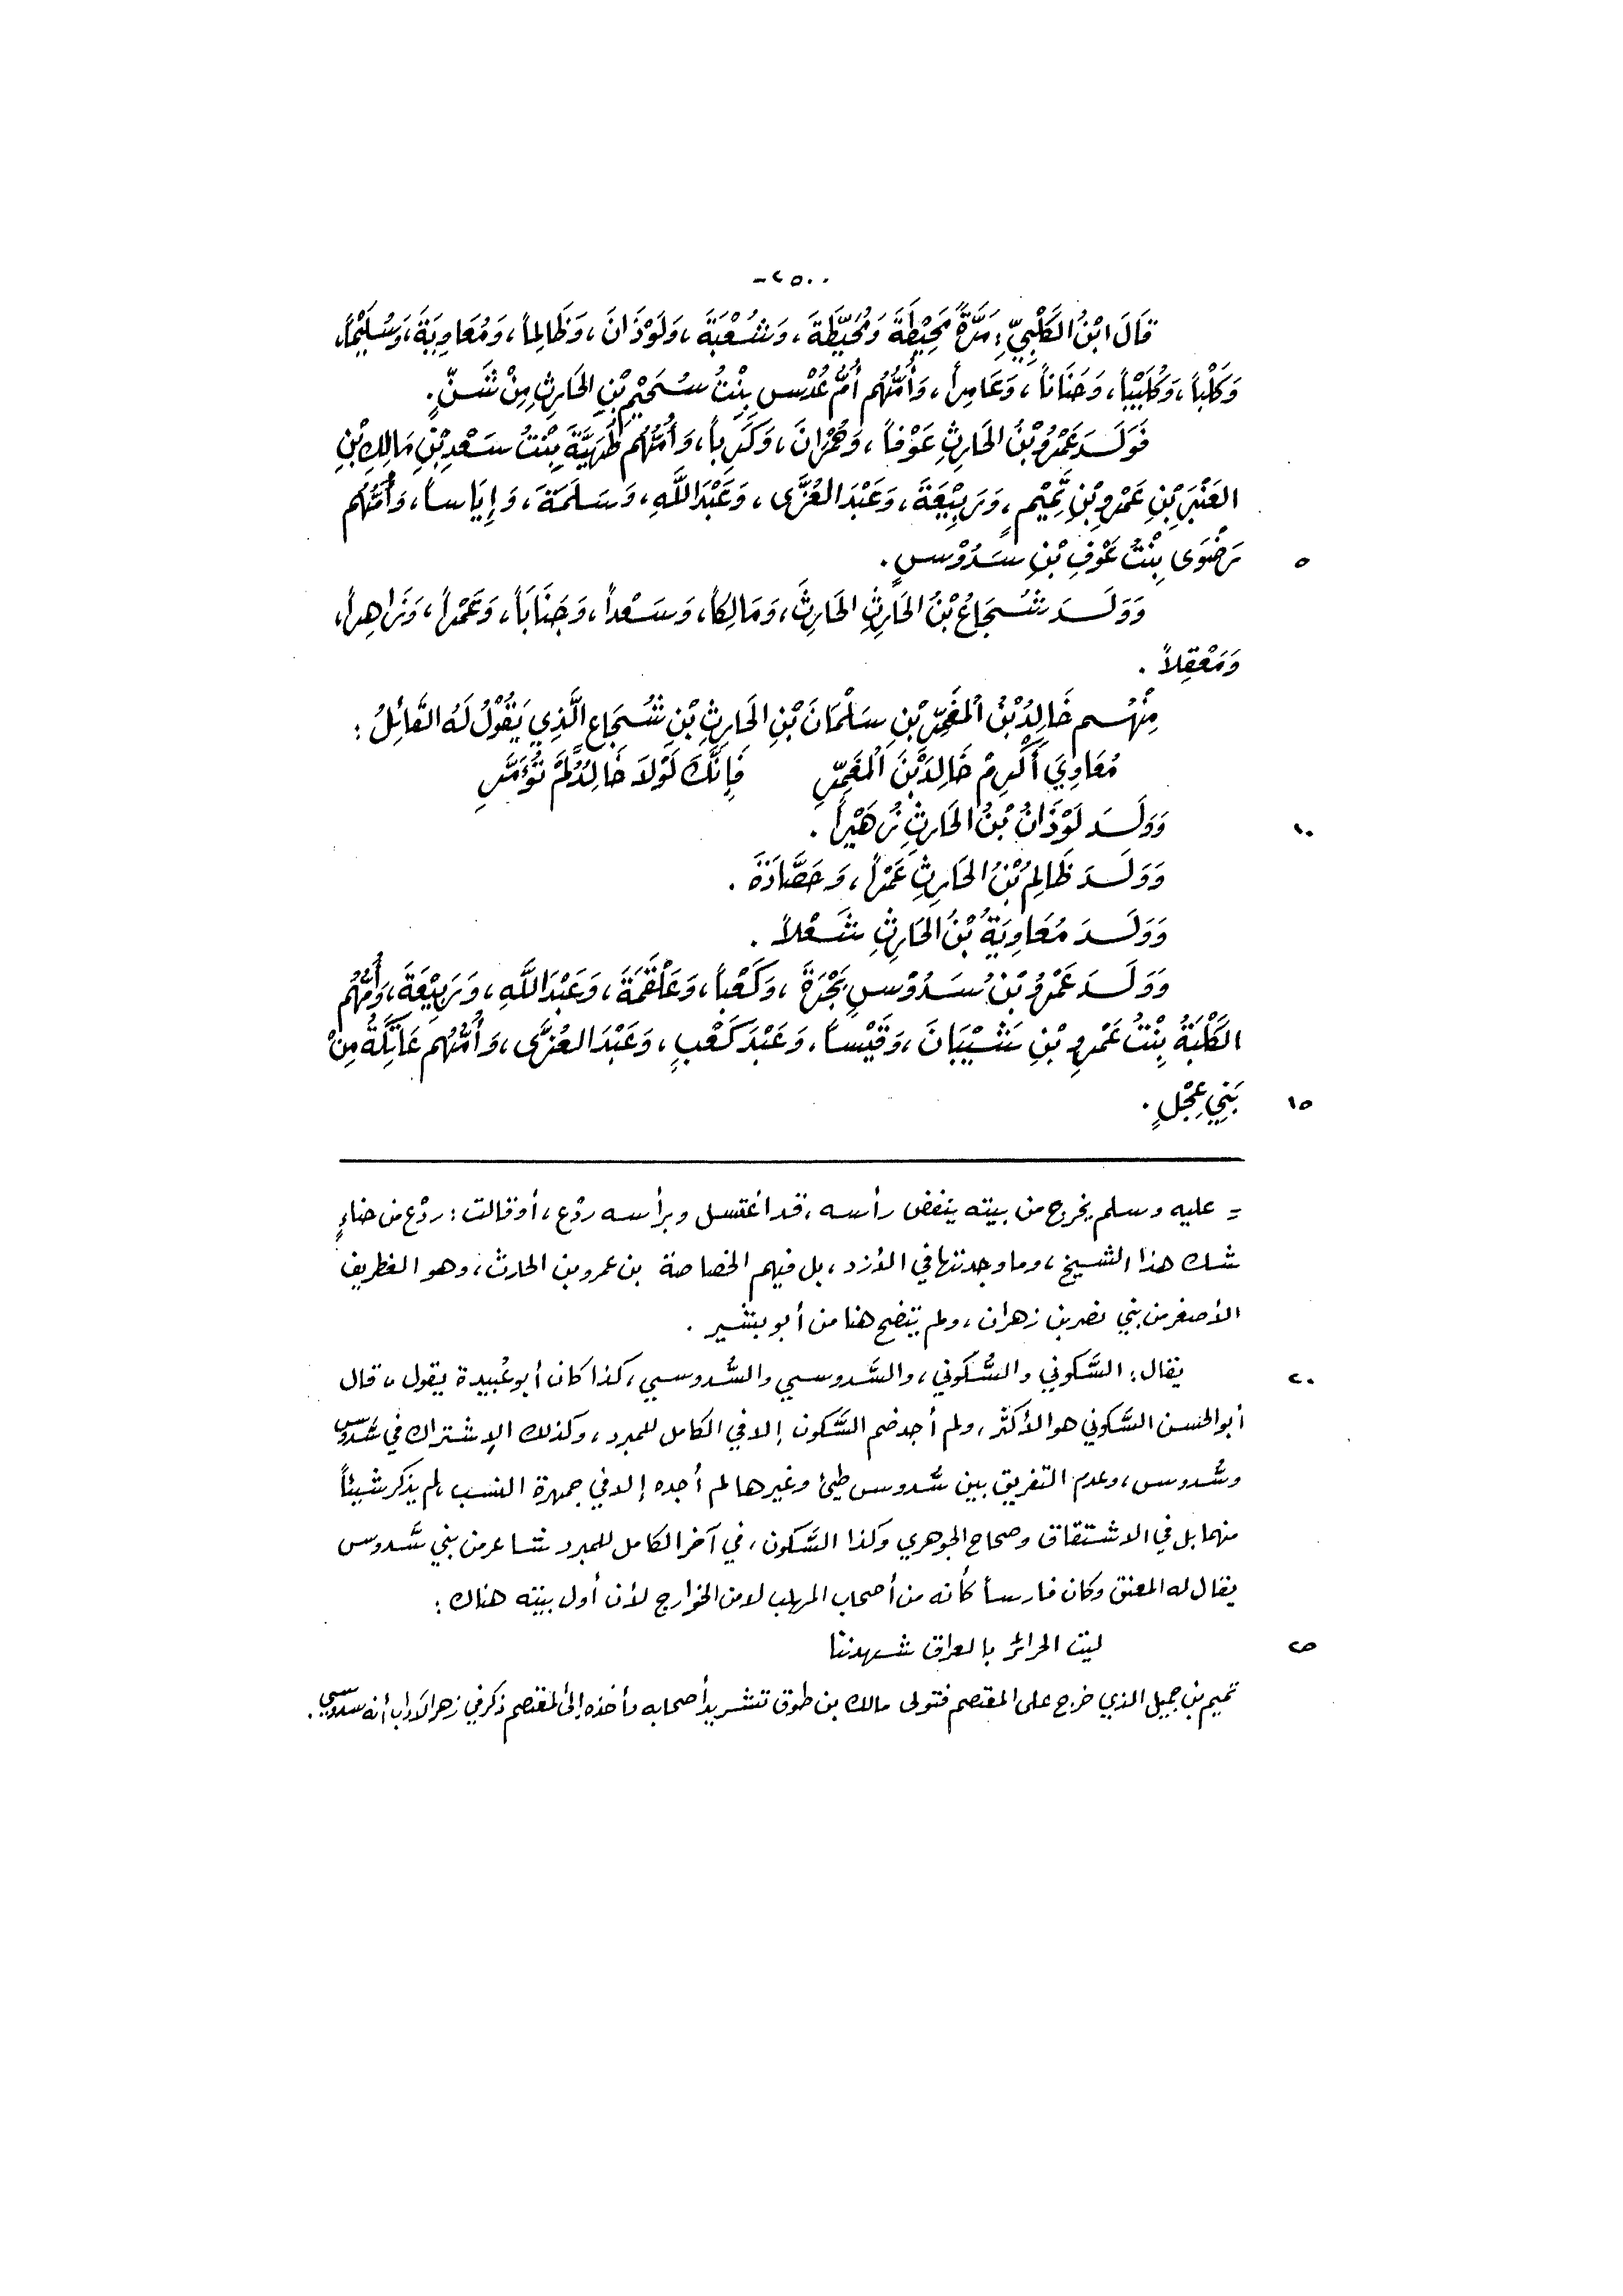 -٢٥٠٠
قَالَ ابْنُ الكَلْبِيِّ: مَرَّةً مَحِيْطَةَ وَمُحَيِّطَةَ، وَشُعْبَةَ، وَلَوْذَانَ، وَظَالِماً، وَمُعَاوِيَةَ، وَسُلَيْماً،
وَكَلْباً، وَكُلَيْباً، وَحَنَاناً، وَعَامِراً، وَأُمُّهُم أُمُّ عُدُسِ بِنْتُ سُحَيْمِ بْنِ الحَارِثِ مِنْ شَنٍّ.
فَوَلَدَ عَمْرُو بْنُ الحَارِثِ عَوْفاً، وَحُمْرَانَ، وَكَرِباً، وَأُمُّهُم طُهَيَّةَ بِنْتُ سَعْدِ بْنِ مَالِكِ بْنِ
العَنْبَرِ بْنِ عَمْرِو بْنِ تَمِيْمٍ، وَرَبِيْعَةَ، وَعَبْدَ العُزَّى، وَعَبْدَ اللَّهِ، وَسَلَمَةَ، وَإِيَاساً، وَأُمُّهُم
رَضْوَى بِنْتُ عَوْفِ بْنِ سَدُوْسٍ.
٥
وَوَلَدَ شُجَاعُ بْنُ الحَارِثِ الحَارِثَ، وَمَالِكاً، وَسَعْداً، وَجَنَاباً، وَعَمْراً، وَزَاهِراً،
وَمَعْقِلاً.
مِنْهُم خَالِدُ بْنُ المُعَمِّرِ بْنِ سَلْمَانَ بْنِ الحَارِثِ بْنِ شُجَاعٍ الَّذِي يَقُوْلُ لَهُ القَائِلُ:
مُعَاوِيَ أَكْرِمْ خَالِدَ بْنَ المُعَمِّرِ فَإِنَّكَ لَوْلاَ خَالِدٌ لَمْ تُؤَمَّرِ
وَوَلَدَ لَوْذَانُ بْنُ الحَارِثِ زُهَيْراً.
١٠
وَوَلَدَ ظَالِمُ بْنُ الحَارِثِ عَمْراً، وَحَصَّادَةَ.
وَوَلَدَ مُعَاوِيَةُ بْنُ الحَارِثِ شَعْلاً.
وَوَلَدَ عَمْرُو بْنُ سَدُوْسٍ بَجْرَةَ، وَكَعْباً، وَعَلْقَمَةَ، وَعَبْدَ اللَّهِ، وَرَبِيْعَةَ، وَأُمُّهُم
الكَلْبَةُ بِنْتُ عَمْرِو بْنِ شَيْبَانَ، وَقَيْساً، وَعَبْدَ كَعْبٍ، وَعَبْدَ العُزَّى، وَأُمُّهُم عَاتِكَةُ مِنْ
بَنِي عِجْلٍ.
١٥
= عليه وسلم يخرج من بيته ينفض رأسه، قد اغتسل وبرأسه ردْع، أو قالت: ردْع من حناءٍ
شك هذا الشيخ، وما وجدتها في الأزد، بل فيهم الخصاصة بن عمرو بن الحارث، وهو الغطريف
الأصغر من بني نصر بن زهران، ولم يتضح هنا من أبو بشير.
يقال: السَّكوني والسُّكوني، والسَّدوسي والسُّدوسي، كذا كان أبو عُبيدة يقول، قال
٢٠
أبو الحسن السَّكوني هو الأكثر، ولم أجد ضم السَّكون إلا في الكامل للمبرد، وكذلك الإشتراك في سَدوس
وسُدوس، وعدم التفريق بين سُدوس طيئ وغيرها لم أجده إلا في جمهرة النسب، لم يذكر شيئاً
منهما بل في الاشتقاق وصحاح الجوهري وكذا السَّكون، في آخر الكامل للمبرد شاعر من بني سَدوس
يقال له المعنق وكان فارساً كأنه من أصحاب المهلب لا من الخوارج لأن أول بيته هناك:
ليت الحرائر بالعراق شهدننا
٢٥
تميم بن جميل الذي خرج على المعتصم فتولى مالك بن طوق تشريد أصحابه وأخذه إلى المعتصم ذكر في زهر الآداب أنه سدوسي.